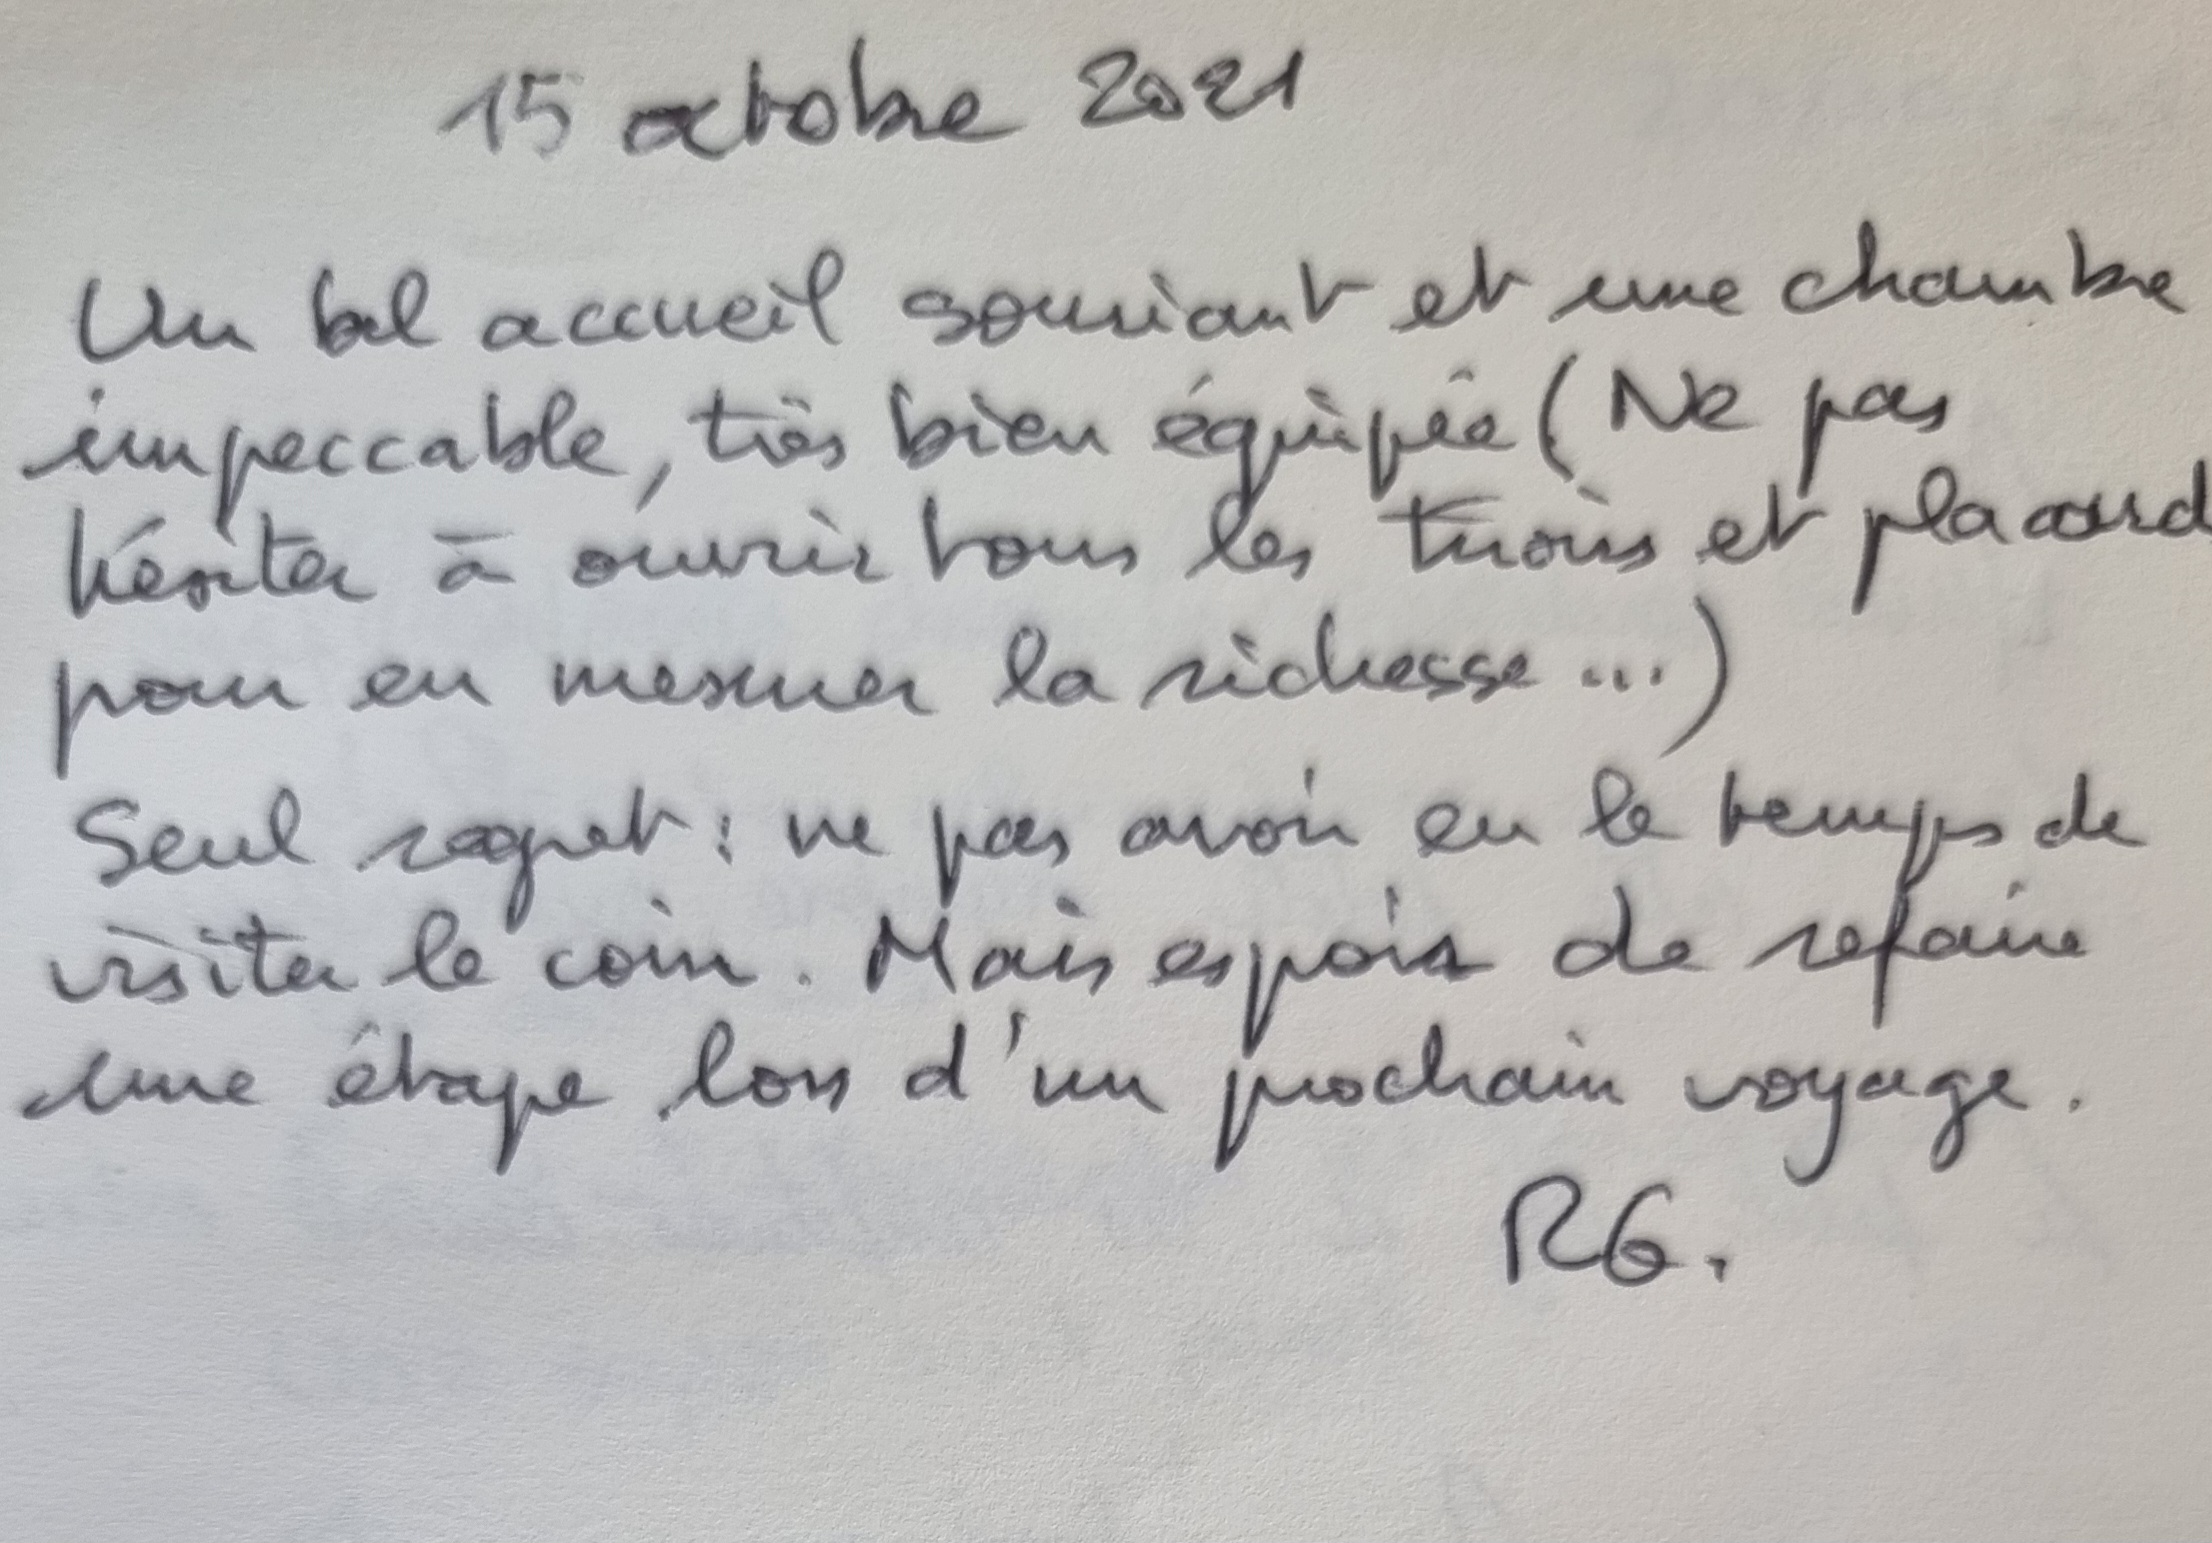 15 octobre 2021
Un bel accueil souriant et une chambre
impeccable, très bien équipée (Ne pas
hésiter à ouvrir tous les tiroirs et placard
pour en mesurer la richesse ...)
Seul regret : ne pas avoir eu le temps de
visiter le coin. Mais espoir de refaire
une étape lors d'un prochain voyage.
RG.